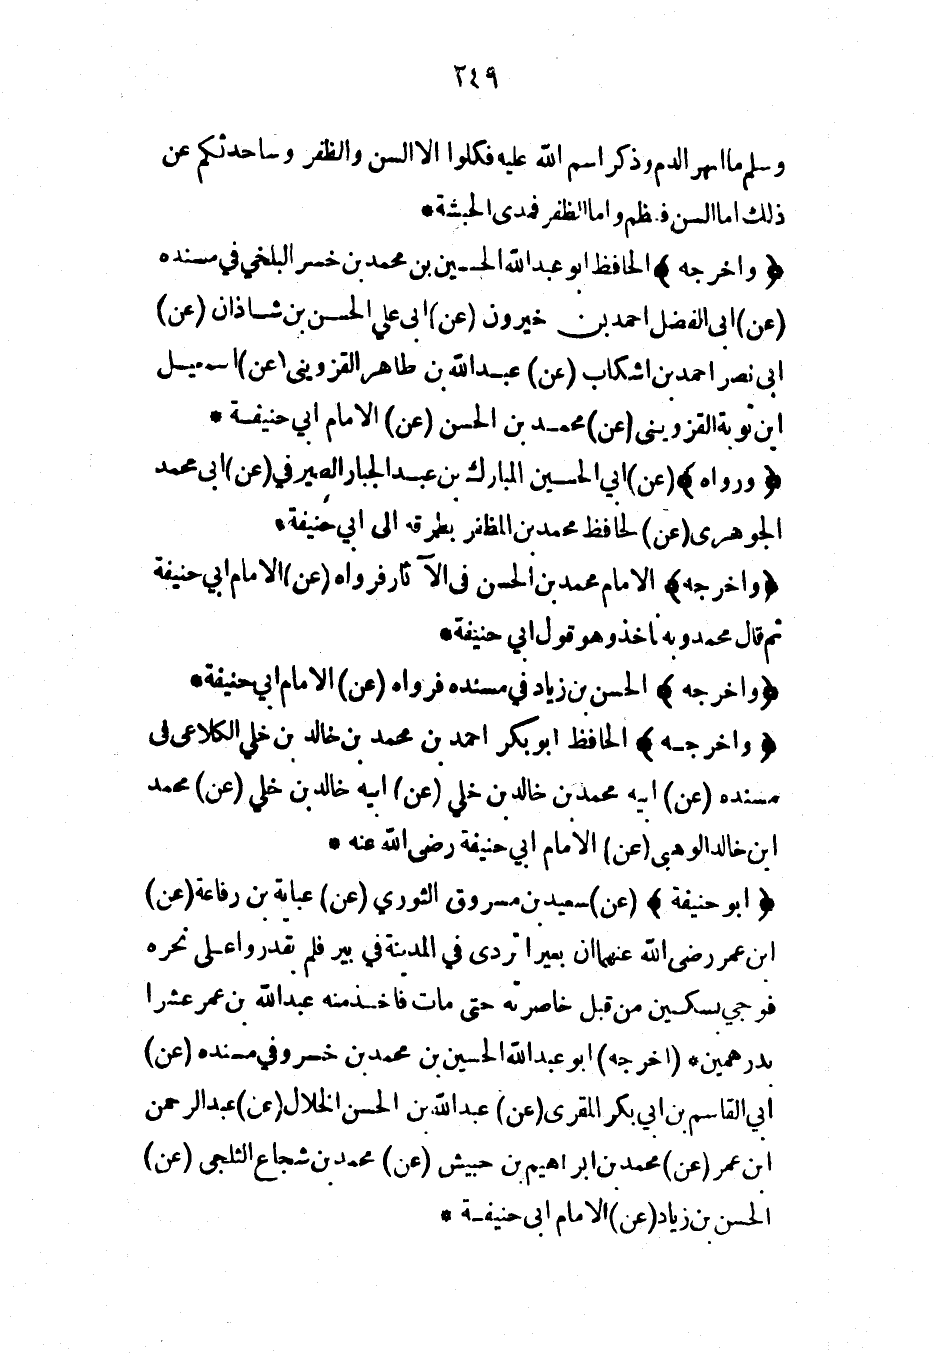 ٢٤٩
وسلم ما انهر الدم وذكر اسم الله عليه فكلوا الا السن والظفر وساحدثكم عن
ذلك اما السن فعظم واما الظفر فمدى الحبشة *
﴿ واخرجه ﴾ الحافظ ابو عبد الله الحسين بن محمد بن خسر البلخي في مسنده
(عن) ابى الفضل احمد بن خيرون (عن) ابى علي الحسن بن شاذان (عن)
ابى نصر احمد بن اشكاب (عن) عبد الله بن طاهر القزوينى (عن) اسمعيل
ابن توبة القزوينى (عن) محمد بن الحسن (عن) الامام ابي حنيفة *
﴿ ورواه ﴾ (عن) ابي الحسين المبارك بن عبد الجبار الصيرفي (عن) ابى محمد
الجوهرى (عن) لحافظ محمد بن المظفر بطرقه الى ابي حنيفة *
﴿ واخرجه ﴾ الامام محمد بن الحسن فى الآثار فرواه (عن) الامام ابي حنيفة
ثم قال محمد وبه ناخذ وهو قول ابي حنيفة *
﴿ واخرجه ﴾ الحسن بن زياد في مسنده فرواه (عن) الامام ابي حنيفة *
﴿ واخرجه ﴾ الحافظ ابو بكر احمد بن محمد بن خالد بن خلي الكلاعى فى
مسنده (عن) ابيه محمد بن خالد بن خلي (عن) ابيه خالد بن خلي (عن) محمد
ابن خالد الوهبى (عن) الامام ابي حنيفة رضى الله عنه *
﴿ ابو حنيفة ﴾ (عن) سعيد بن مسروق الثوري (عن) عباية بن رفاعة (عن)
ابن عمر رضى الله عنهما ان بعيرا تردى في المدينة في بير فلم يقدروا على نحره
فوجي بسكين من قبل خاصرته حتى مات فاخذ منه عبد الله بن عمر عشرا
بدرهمين * (اخرجه) ابو عبد الله الحسين بن محمد بن خسرو في مسنده (عن)
ابي القاسم بن ابي بكر المقرى (عن) عبد الله بن الحسن الخلال (عن) عبد الرحمن
ابن عمر (عن) محمد بن ابراهيم بن حبيش (عن) محمد بن شجاع الثلجى (عن)
الحسن بن زياد (عن) الامام ابى حنيفة *